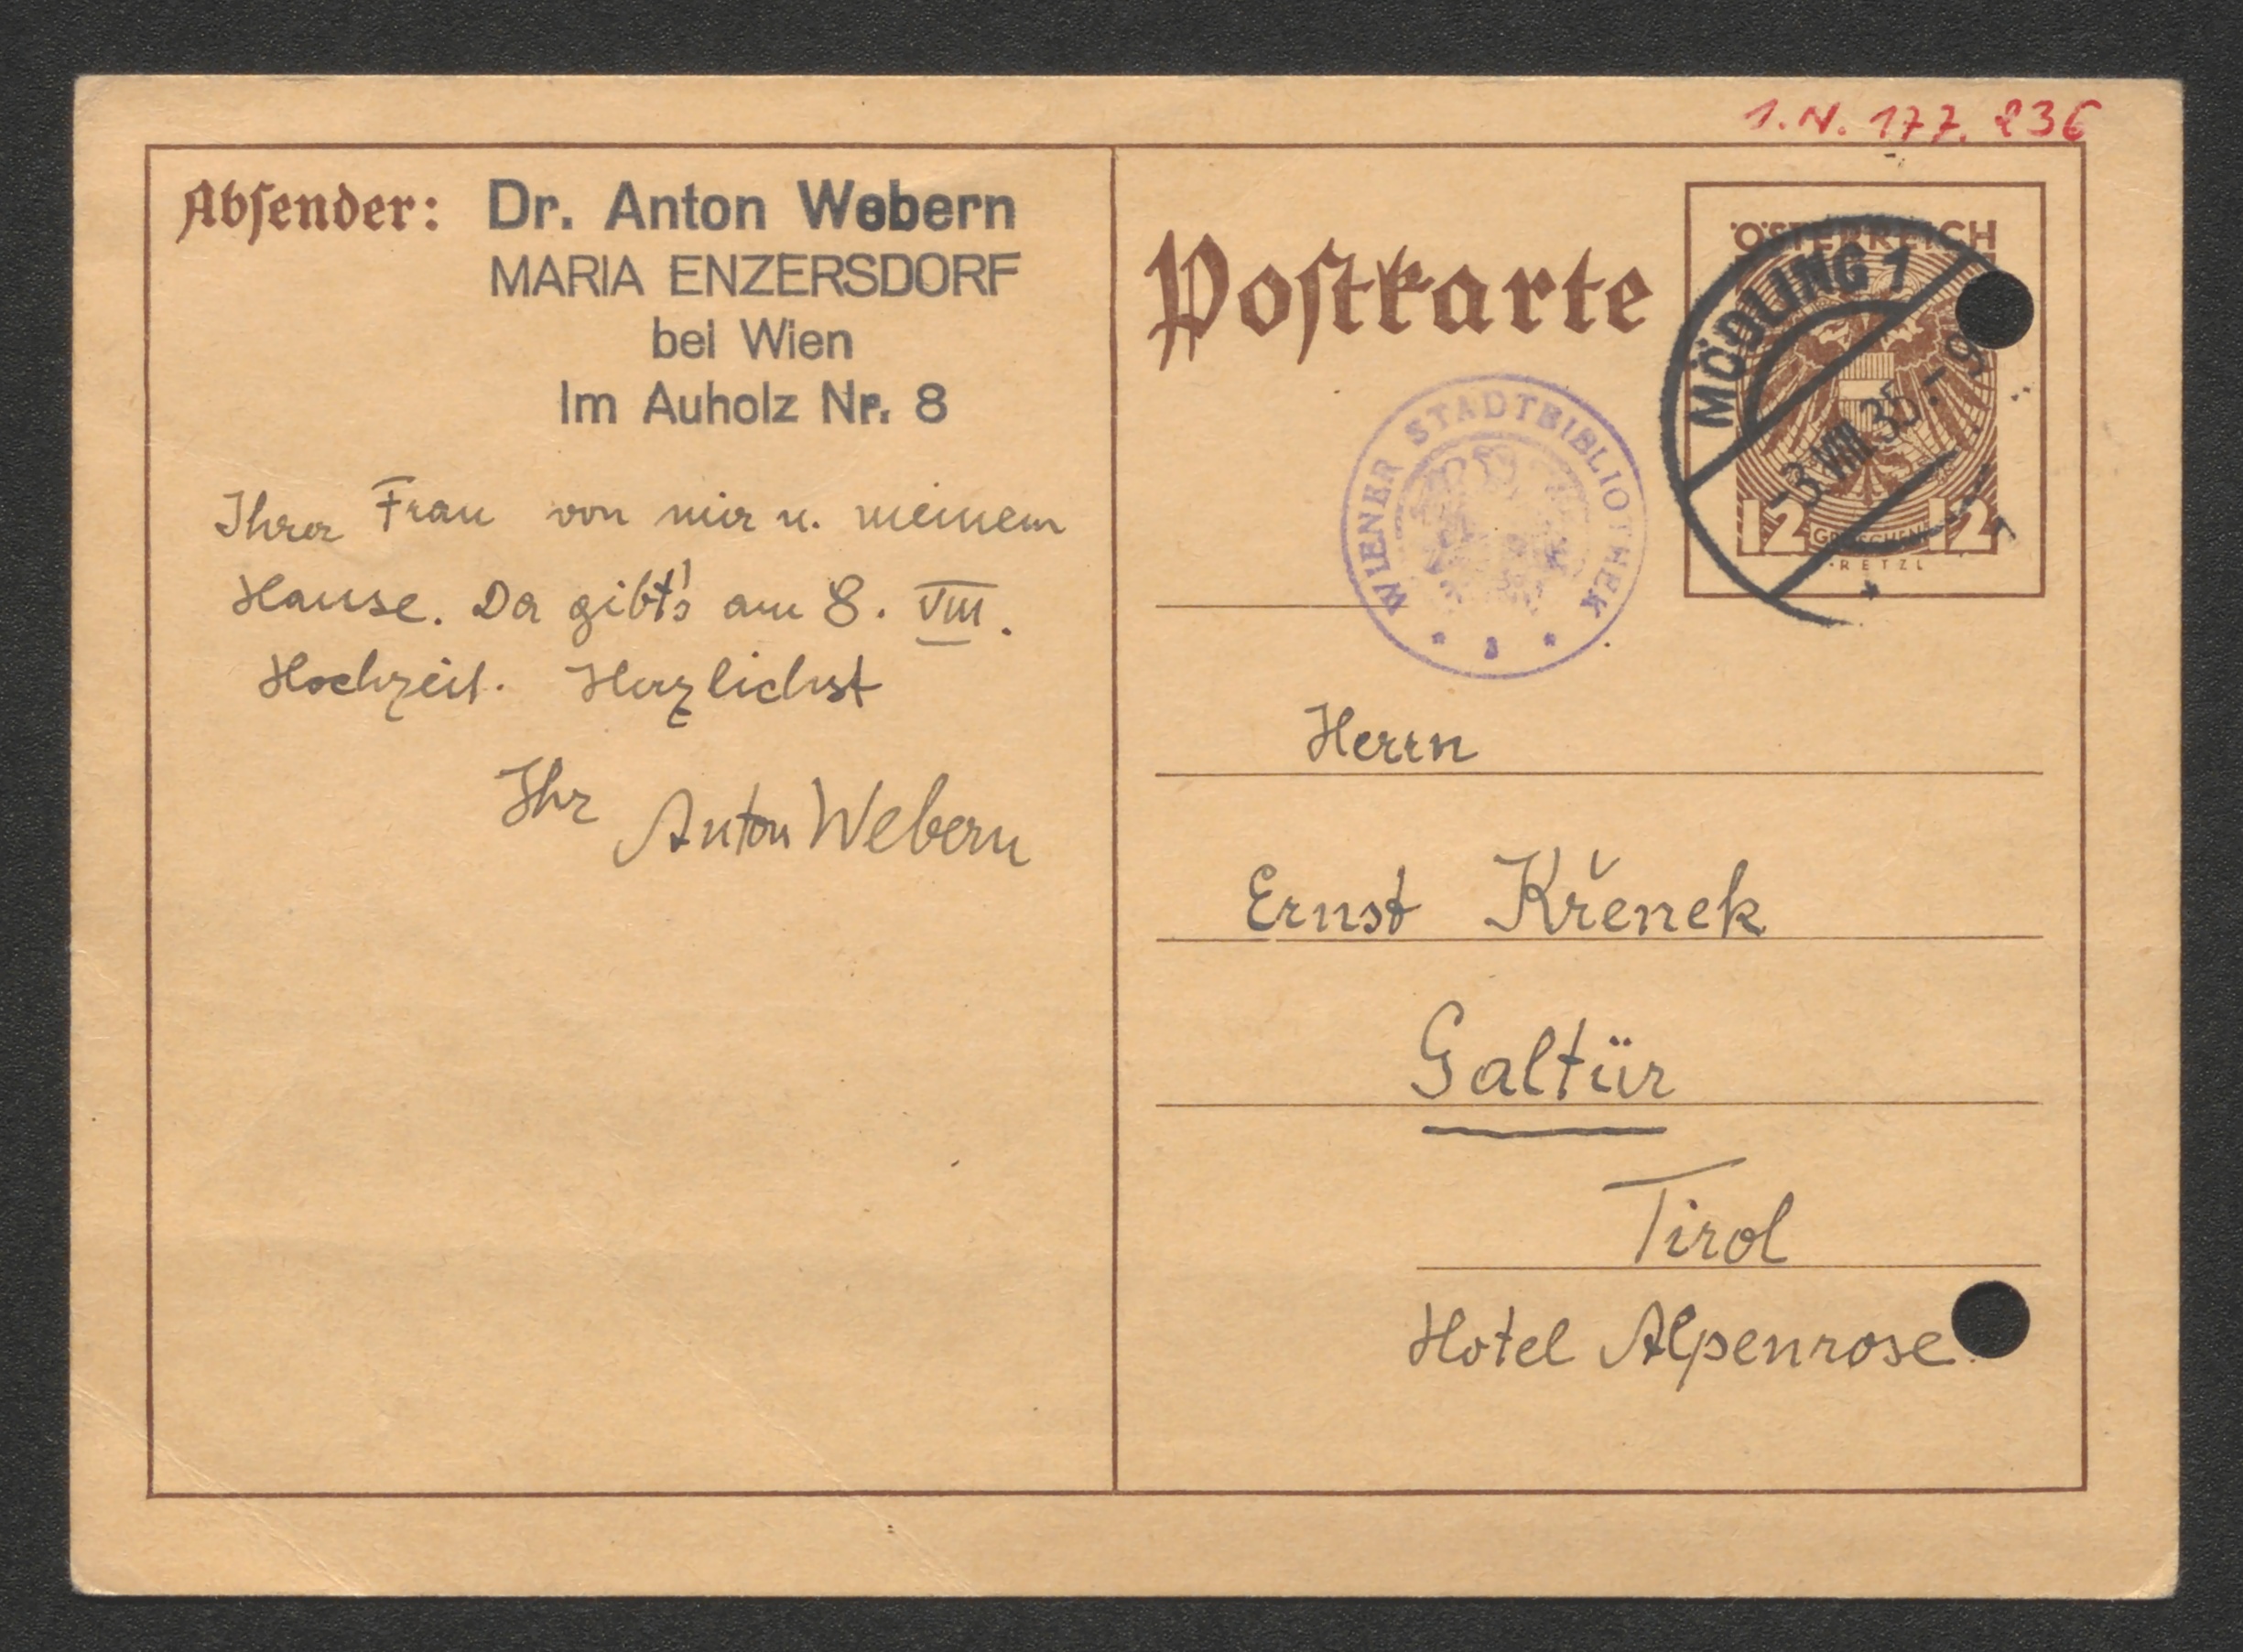 1. N. 177.236
Absender:
Dr. Anton Webern
MARIA ENZERSDORF
bei Wien
Im Auholz Nr. 8
Ihrer Frau von mir u. meinem
Hause. Da gibt's am 8. VIII.
Hochzeit. Herzlichst
Ihr Anton Webern
Postkarte
ÖSTERREICH
12 GROSCHEN 12
RETZL
MÖDLING 1
-3.VIII.35.-9
WIENER STADTBIBLIOTHEK
Herrn
Ernst Křenek
Galtür
Tirol
Hotel Alpenrose